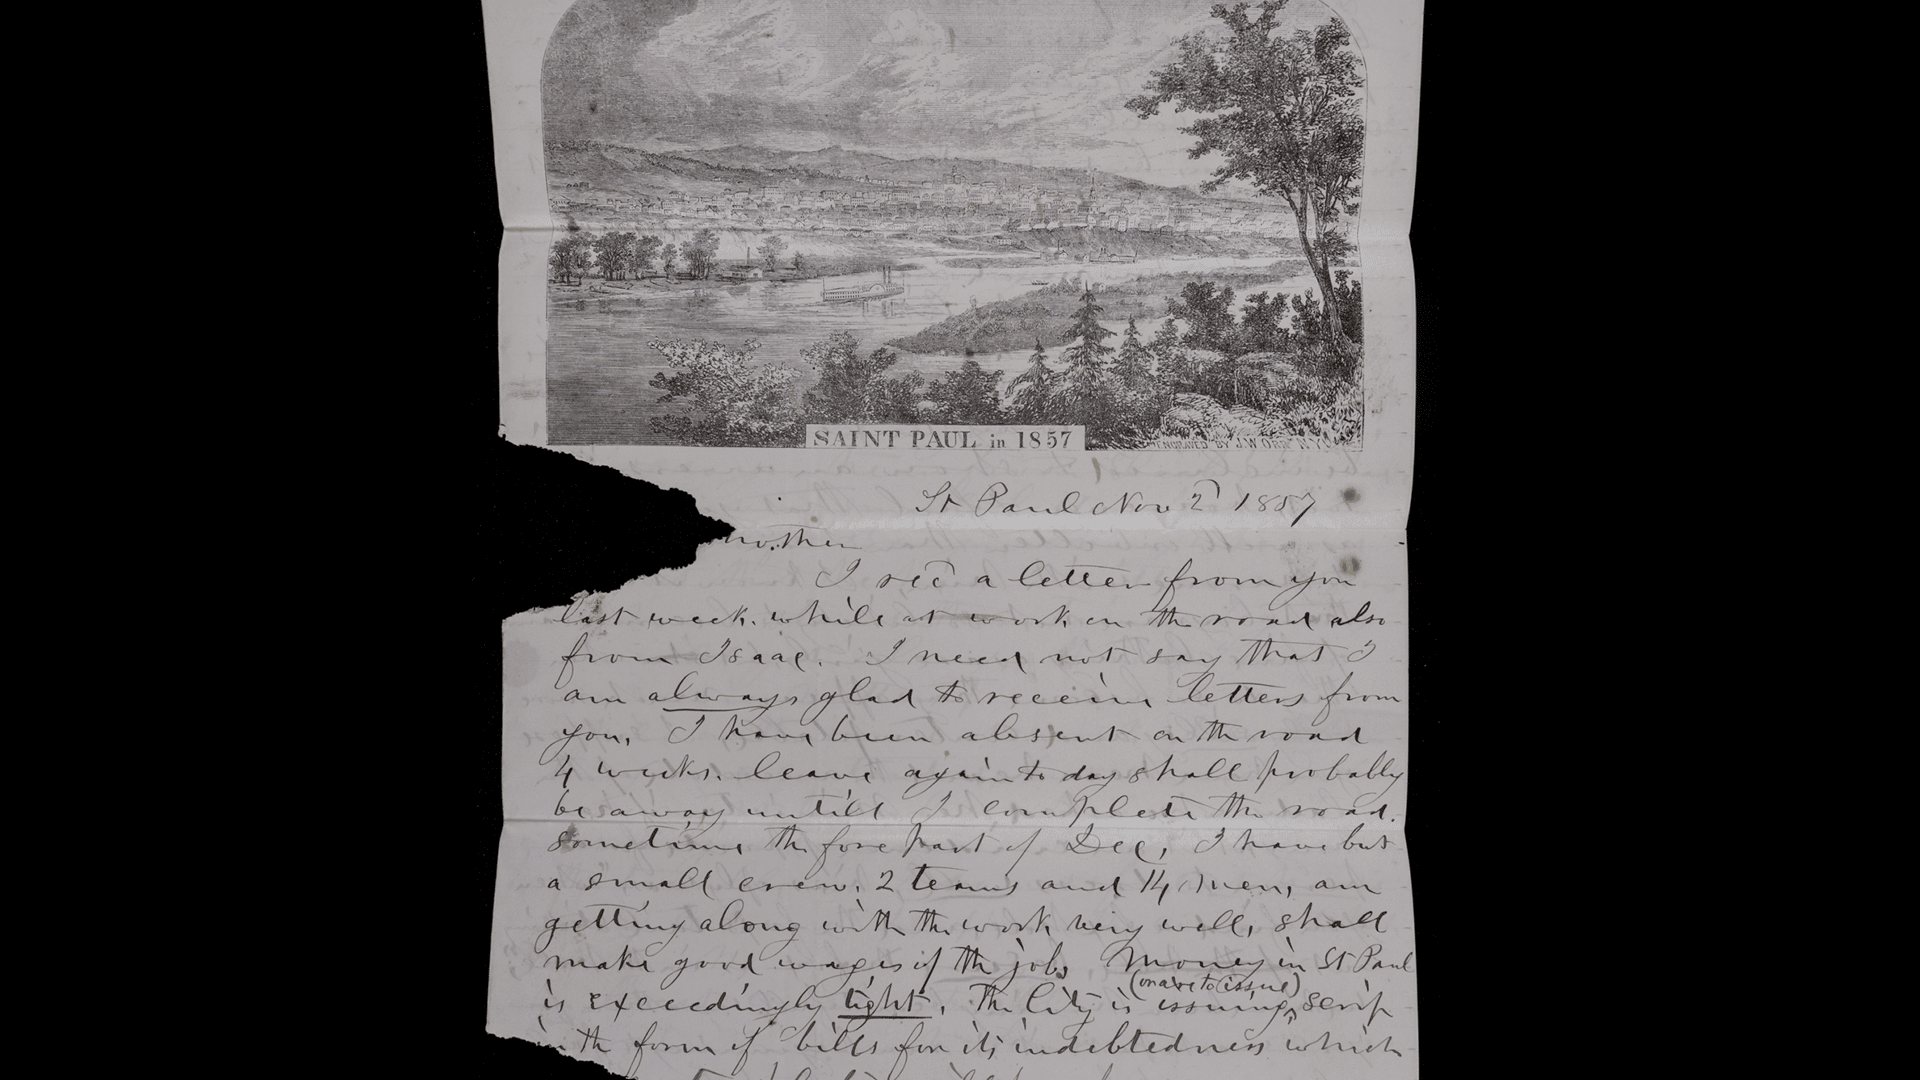 SAINT PAUL in 1857
St Paul Nov 2d 1857
mother
I recd a letter from you
last week. while at work on the road also
from Isaac. I need not say that I
am always glad to receive letters from
you, I have been absent on the road
4 weeks. leave again to day shall probably
be away untill I complete the road.
sometime the fore part of Dec, I have but
a small crew. 2 teams and 14 men, am
getting along with the work very well, shall
make good wages if the job. Money in St Paul
(or are to issue)
is exceedingly tight. The City is issuing scrip
in the form of bills for its indebtedness which